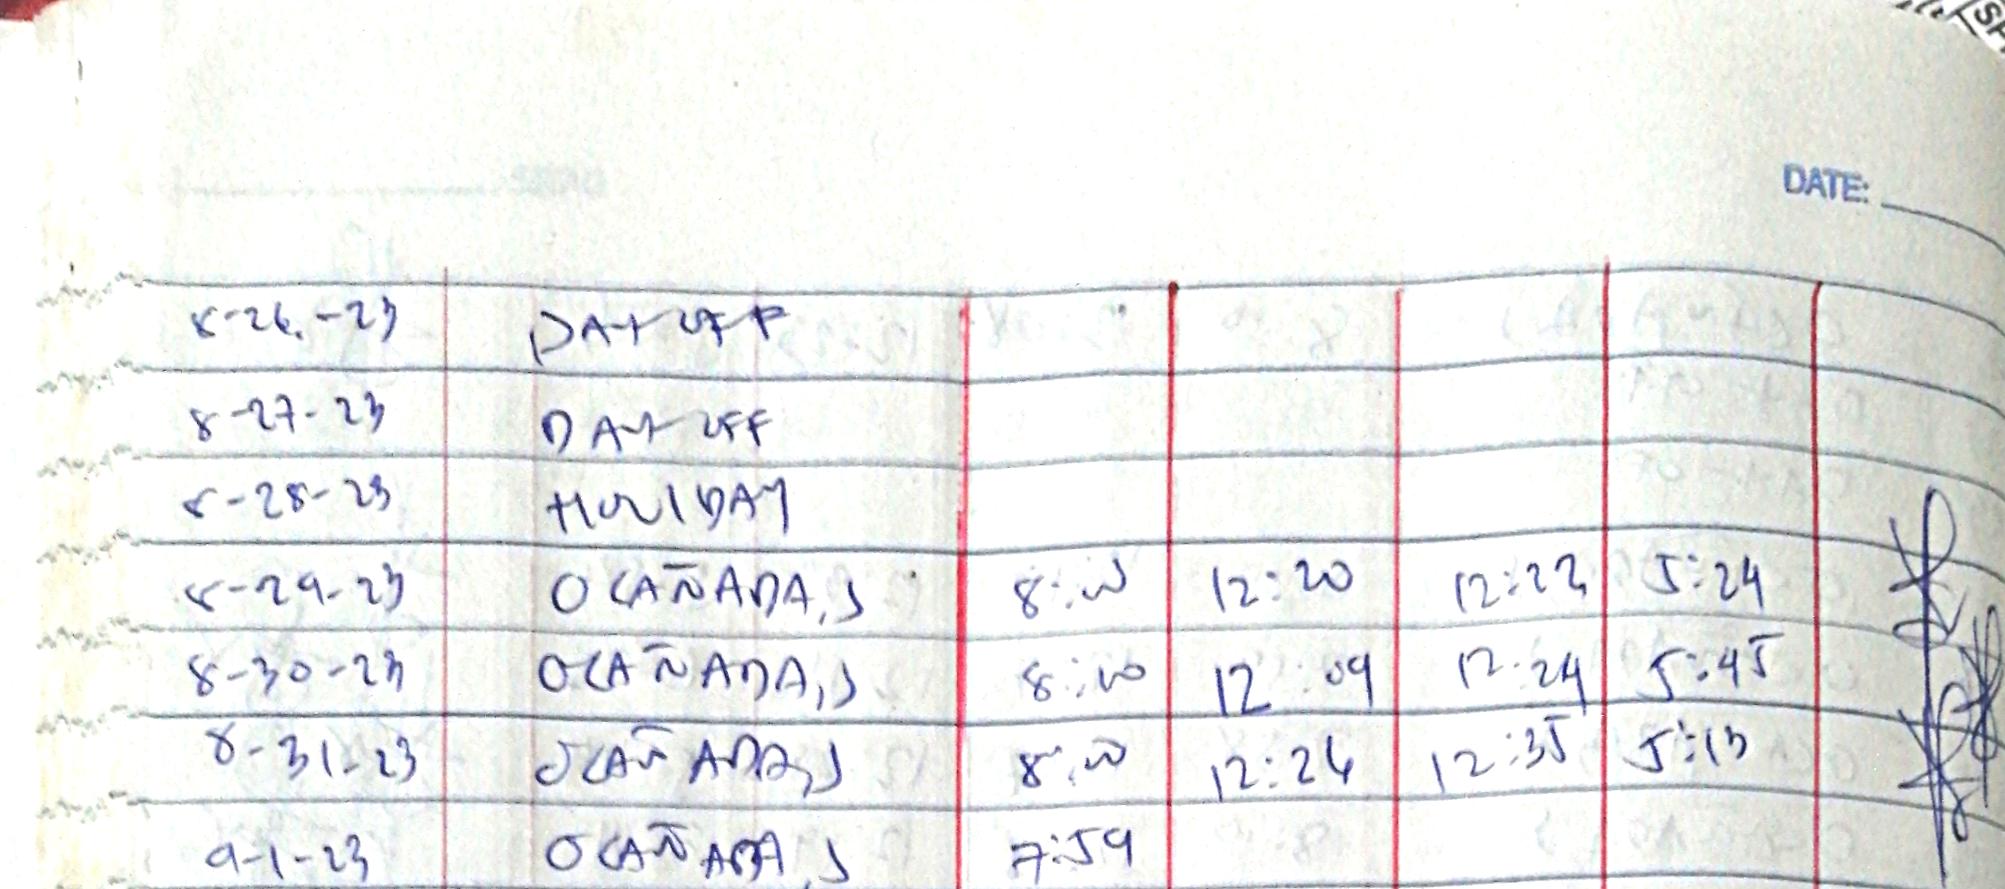 DATE:
8-26-23 DAY OFF
8-27-23 DAY OFF
8-28-23 HOLIDAY
8-29-23 OCAÑADA, J 8:00 12:20 12:22 5:24
8-30-23 OCAÑADA, J 8:00 12:09 12:24 5:45
8-31-23 OCAÑADA, J 8:00 12:26 12:35 5:13
9-1-23 OCAÑADA, J 7:59